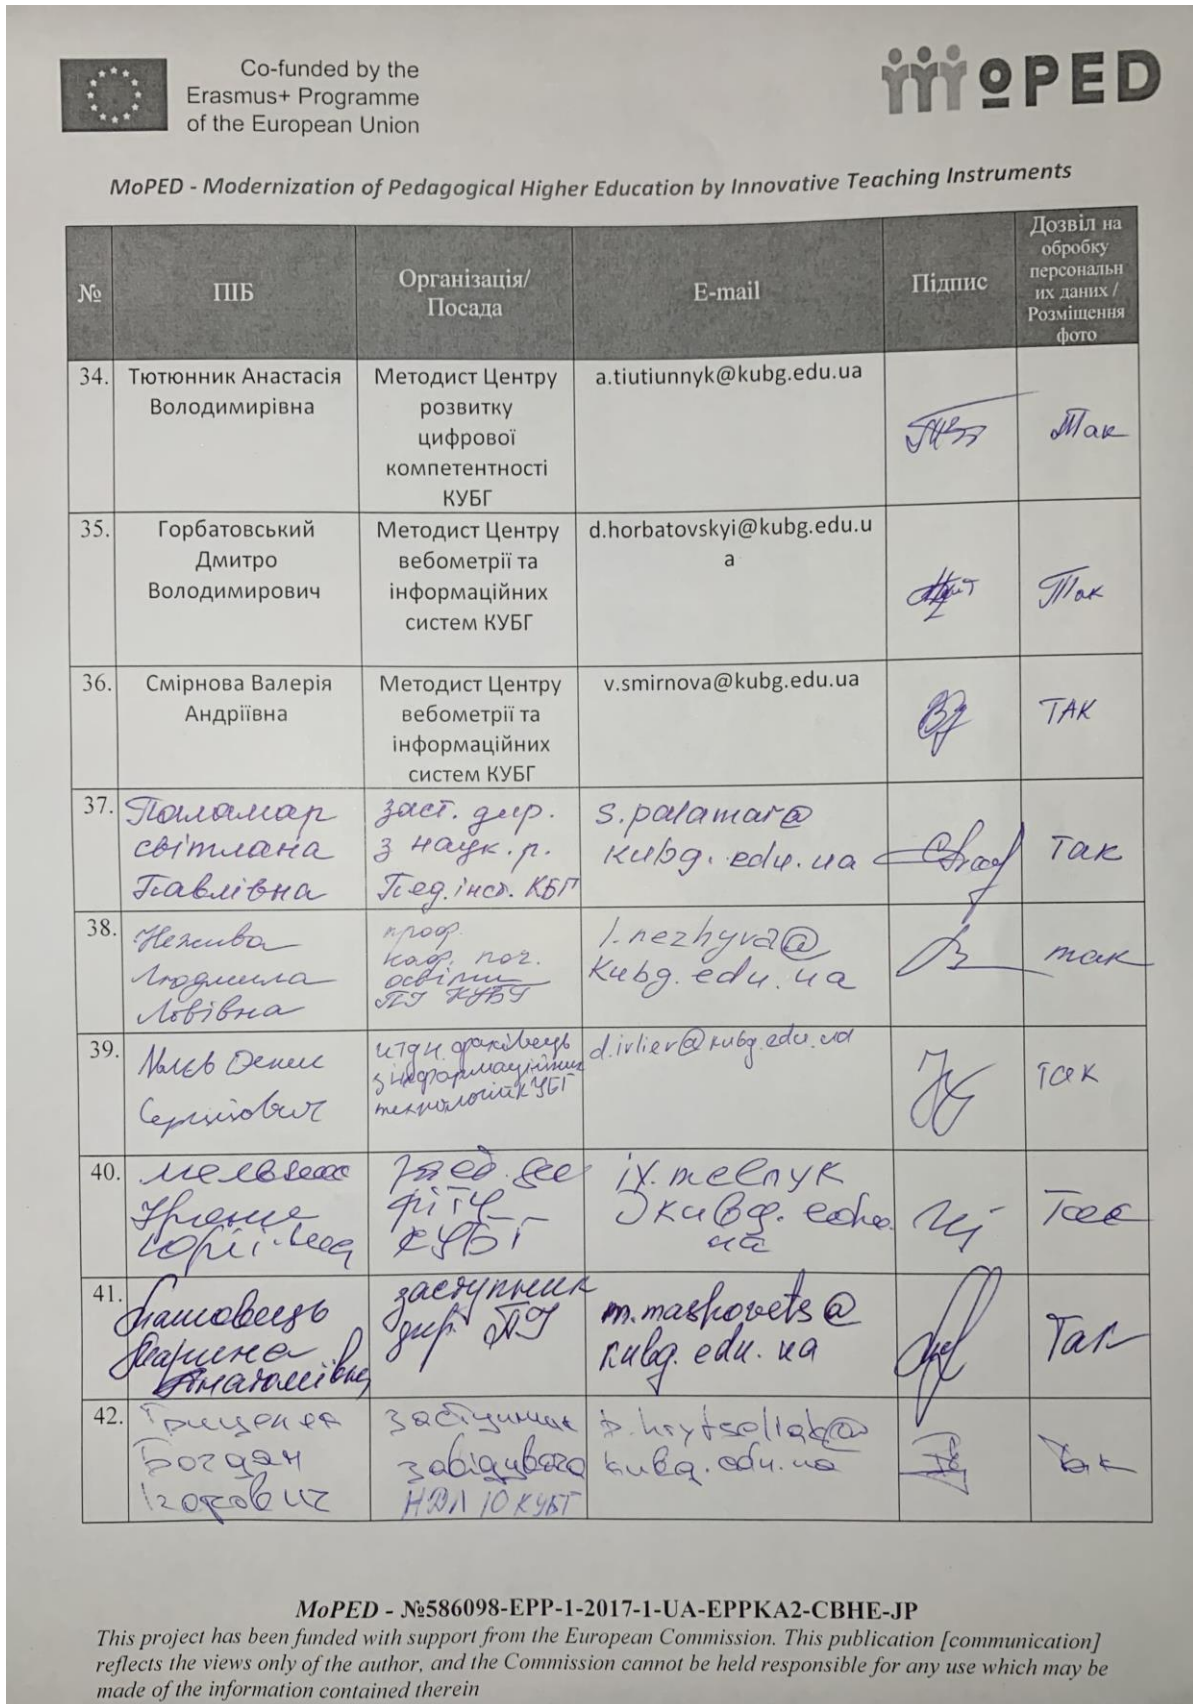 Co-funded by the
Erasmus+ Programme
of the European Union
MOPED
MoPED - Modernization of Pedagogical Higher Education by Innovative Teaching Instruments
№
ПІБ
Організація/
Посада
E-mail
Підпис
Дозвіл на
обробку
персональн
их даних /
Розміщення
фото
34.
Тютюнник Анастасія
Володимирівна
Методист Центру
розвитку
цифрової
компетентності
КУБГ
a.tiutiunnyk@kubg.edu.ua
Так
35.
Горбатовський
Дмитро
Володимирович
Методист Центру
вебометрії та
інформаційних
систем КУБГ
d.horbatovskyi@kubg.edu.u
a
Так
36.
Смірнова Валерія
Андріївна
Методист Центру
вебометрії та
інформаційних
систем КУБГ
v.smirnova@kubg.edu.ua
ТАК
37.
Паламар
світлана
Павлівна
заст. дир.
з наук. р.
Пед. інст.
s.palamar@
kubg.edu.ua
Так
38.
Нежива
Людмила
Львівна
проф.
каф. поч.
освіти
ПІ КУБГ
l.nezhyva@
kubg.edu.ua
так
39.
Денис
Сергійович
фахівець
з інформаційних
технологій КУБГ
d.irliev@kubg.edu.ua
так
40.
Мельник
Ірина
Юріївна
ФІТУ
КУБГ
iy.melnyk
@kubg.edu.
ua
Так
41.
Машовець
Марина
Анатоліївна
заступник
дир. ПІ
m.mashovets@
kubg.edu.ua
Так
42.
Богдан
Ігорович
заступник
завідувача
НДЛ ІО КУБГ
kubg.edu.ua
Так
MoPED - №586098-EPP-1-2017-1-UA-EPPKA2-CBHE-JP
This project has been funded with support from the European Commission. This publication [communication]
reflects the views only of the author, and the Commission cannot be held responsible for any use which may be
made of the information contained therein